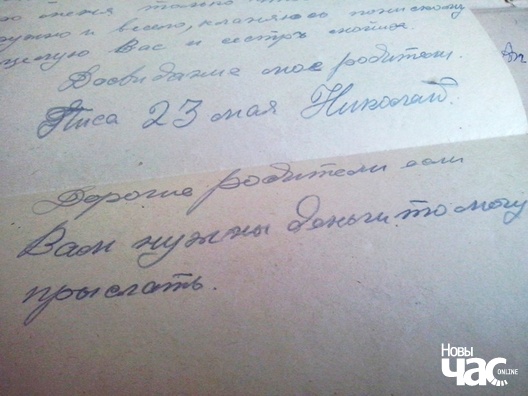 только
и весело, кланяюсь
целую Вас и сестру
Досвидание мое родители.
Писа 23 мая Николай.
Дорогие родители если
Вам нужны деньги то могу
прыслать.
Новы
Час
ONLINE